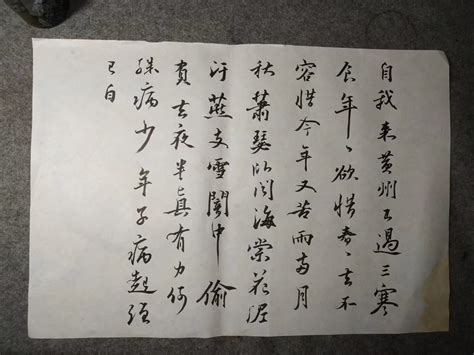 自我来黄州已過三寒
食年〻欲惜春〻去不
容惜今年又苦雨両月
秋蕭瑟卧闻海棠花泥
汙燕支雪闇中偷
負去夜半真有力何
殊病少年子病起頭
已白